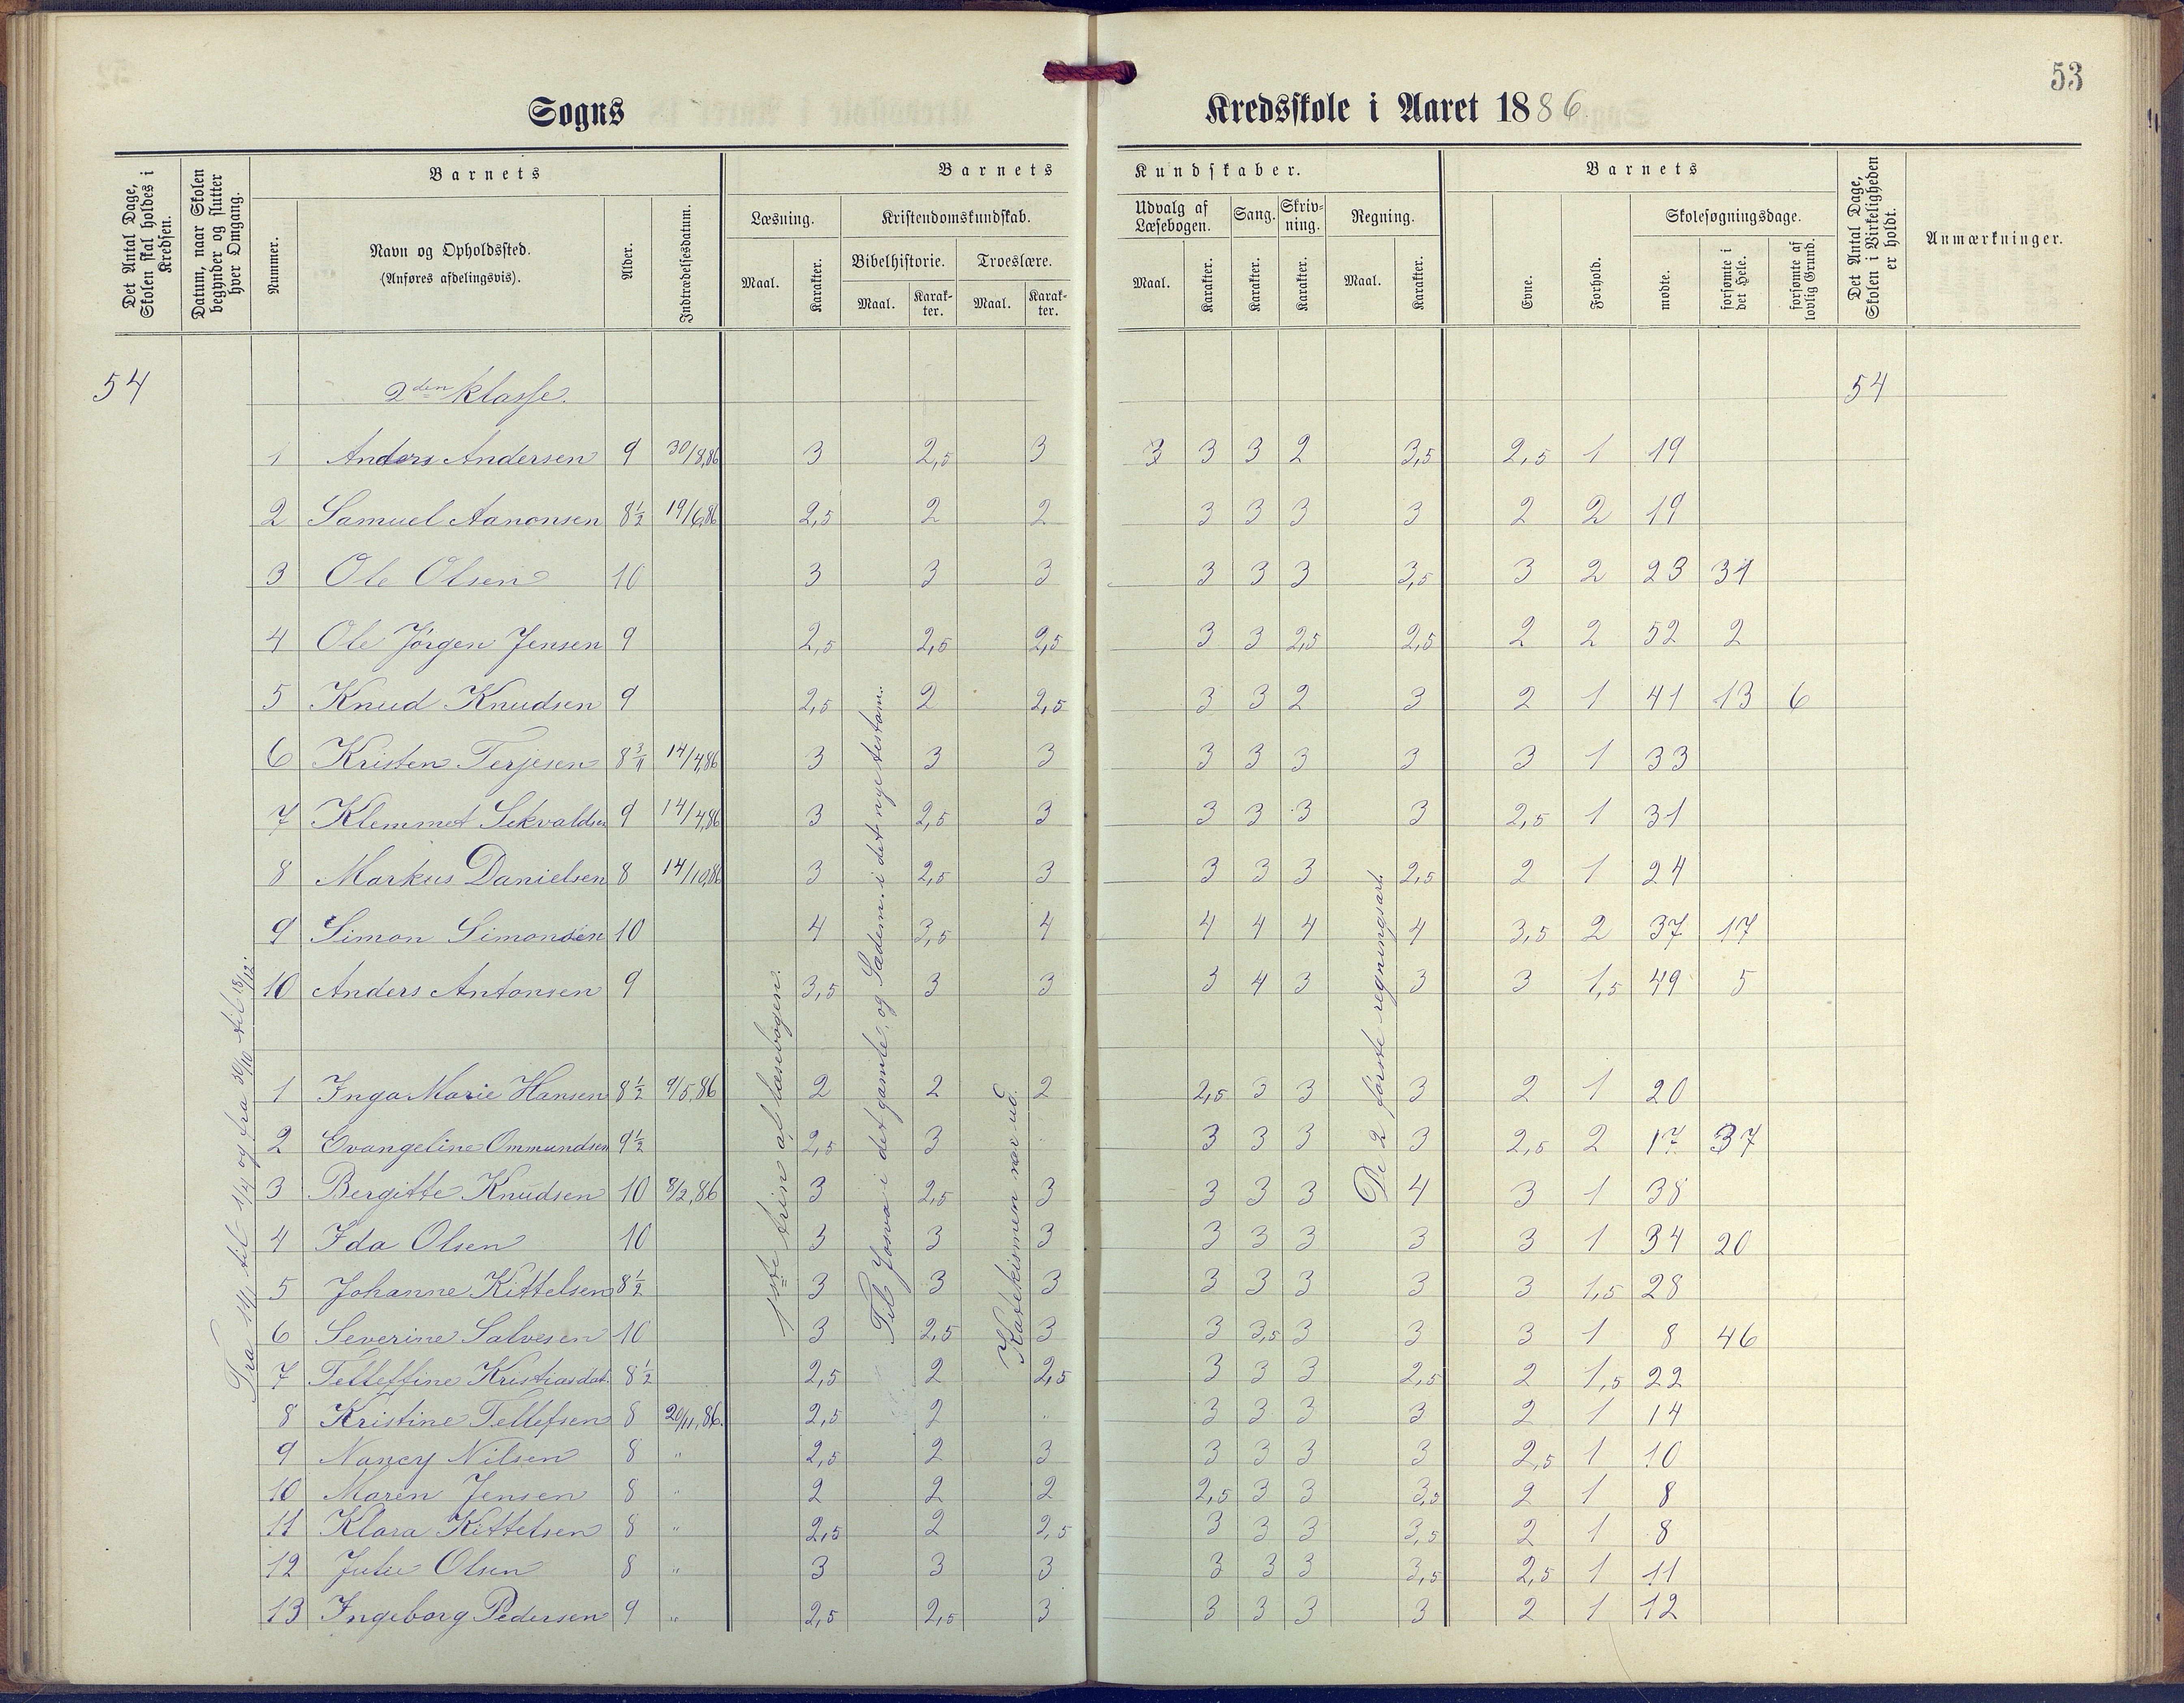 53
Sogns Kredsskole i Aaret 1886.
Det Antal Dage, Skolen skal holdes i Kredsen.
Datum, naar Skolen begynder og slutter hver Omgang.
Barnets
Nummer.
Navn og Opholdssted.
(Anføres afdelingsvis).
Alder.
Indtrædelsesdatum.
Barnets Kundskaber.
Læsning.
Maal.
Karakter.
Kristendomskundskab.
Bibelhistorie.
Maal.
Karakter.
Troeslære.
Maal.
Karakter.
Udvalg af Læsebogen.
Maal.
Karakter.
Sang.
Karakter.
Skrivning.
Karakter.
Regning.
Maal.
Karakter.
Barnets
Evne.
Forhold.
Skolesøgningsdage.
mødte.
forsømte i det Hele.
forsømte af lovlig Grund.
Det Antal Dage, Skolen i Virkeligheden er holdt.
Anmærkninger.
54 2den klasse. 54
1 Anders Andersen 9 30/8,86 3 2,5 3 3 3 3 2 3,5 2,5 1 19
2 Samuel Aanonsen 8½ 19/6,86 2,5 2 2 3 3 3 3 2 2 19
3 Ole Olsen 10 3 3 3 3 3 3 3,5 3 2 23 31
4 Ole Jörgen Jensen 9 2,5 2,5 2,5 3 3 2,5 2,5 2 2 52 2
5 Knud Knudsen 9 2,5 2 2,5 3 3 2 3 2 1 41 13 6
6 Kristen Terjesen 8 14/4,86 3 3 3 3 3 3 3 3 1 33
7 Klemmet Sekvaldsen 9 14/4,86 3 2,5 3 3 3 3 3 2,5 1 31
8 Markus Danielsen 8 14/10,86 3 2,5 3 3 3 3 2,5 2 1 24
9 Simon Simonsen 10 4 3,5 4 4 4 4 4 3,5 2 37 17
10 Anders Antonsen 9 3,5 3 3 3 4 3 3 3 1,5 49 5
1 Inga Marie Hansen 8½ 9/5,86 2 2 2 2,5 3 3 3 2 1 20
2 Evangeline Ommundsen 9½ 2,5 3 " 3 3 3 3 2,5 2 17 37
3 Bergitte Knudsen 10 8/2,86 3 2,5 3 3 3 3 4 3 1 38
4 Ida Olsen 10 3 3 3 3 3 3 3 3 1 34 20
5 Johanne Kittelsen 8½ 3 3 3 3 3 3 3 3 1,5 28
6 Severine Salvesen 10 3 2,5 3 3 3,5 3 3 3 1 8 46
7 Telleffine Kristiasdat. 8½ 2,5 2 2,5 3 3 3 2,5 2 1,5 22
8 Kristine Tellefsen 8 20/11,86. 2,5 2 " 3 3 3 3 2 1 14
9 Nancy Nilsen 8 " 2,5 2 3 3 3 3 3 2,5 1 10
10 Maren Jensen 8 " 2 2 2 2,5 3 3 3,5 2 1 8
11 Klara Kittelsen 8 " 2,5 2 2,5 3 3 3 3,5 2 1 8
12 Julie Olsen 8 " 3 3 3 3 3 3 3,5 2,5 1 11
13 Ingeborg Pedersen 9 " 2,5 2,5 3 3 3 3 3 2 1 12
Fra 14/1 til 1/4 og fra 30/10 til 18/12.
1ste trin af læsebogen.
Til Josva i det gamle, og Sædem. i det nye testam.
Katekismen nær ud.
De 2 første regningsart.